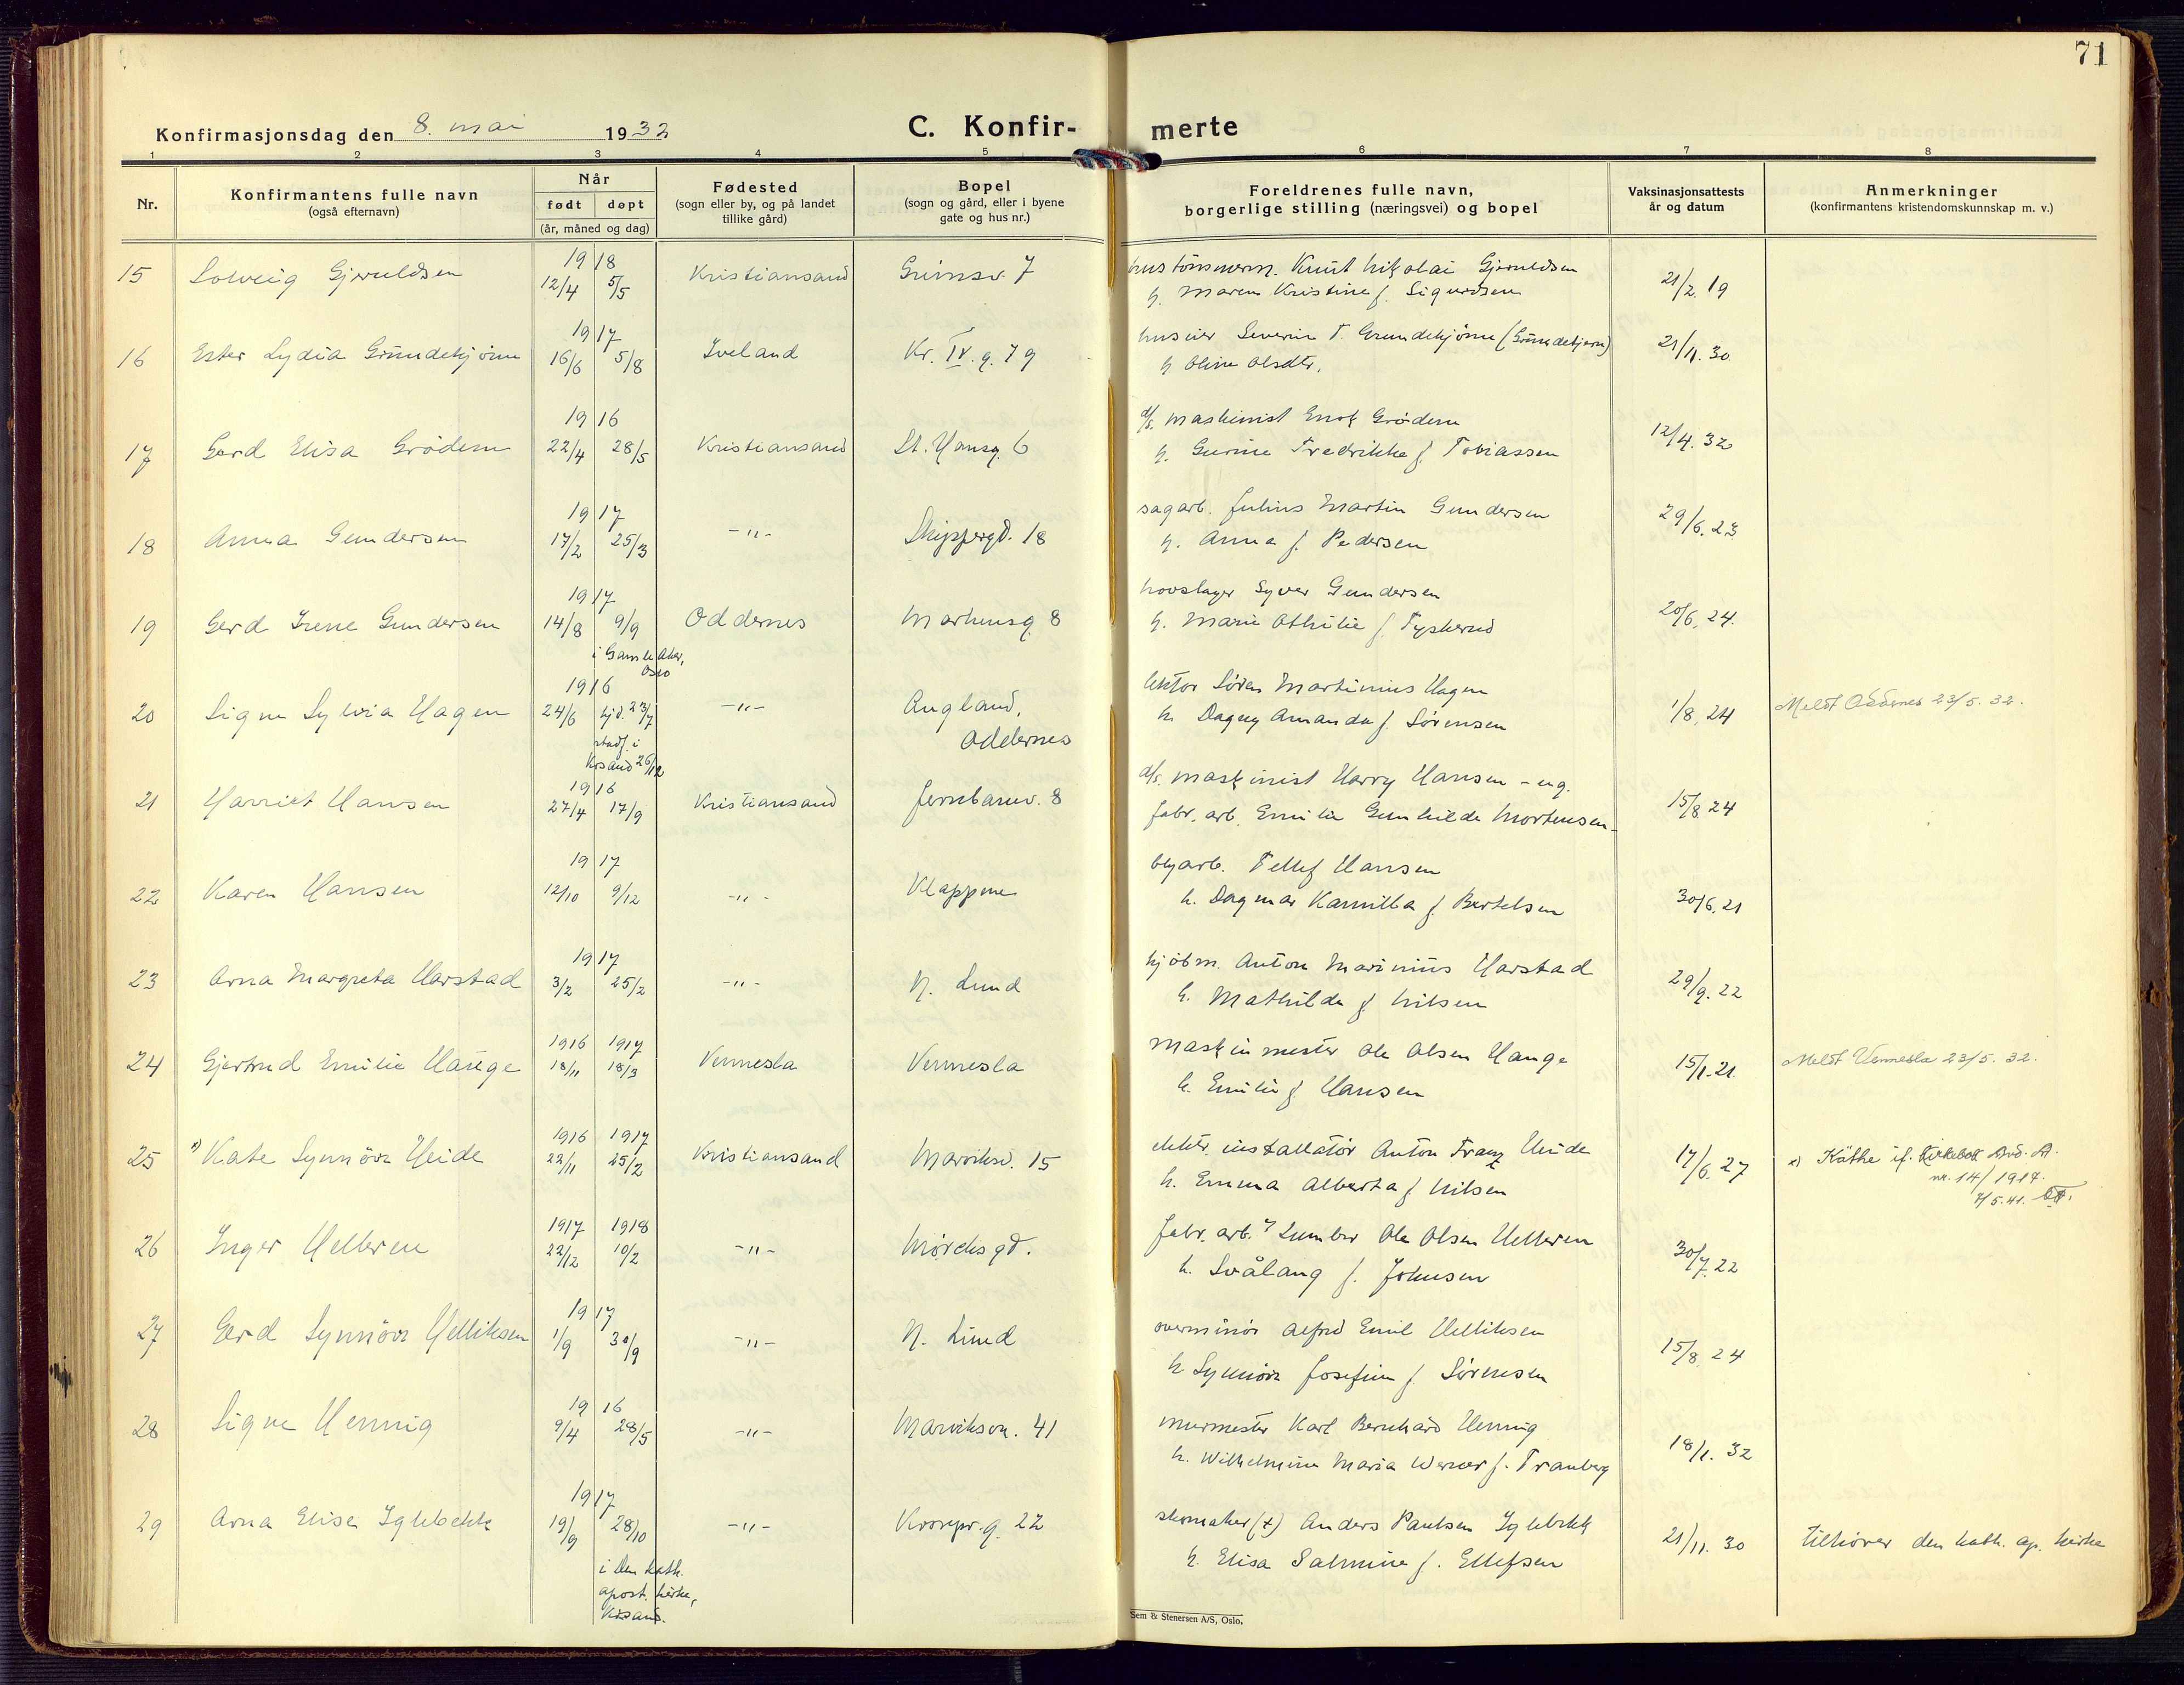 71
Konfirmasjonsdag den 8. mai 1932
C. Konfir- merte
1 2 3 4 5 6 7 8
Nr.
Konfirmantens fulle navn
(også efternavn)
Når
født døpt
(år, måned og dag)
Fødested
(sogn eller by, og på landet
tillike gård)
Bopel
(sogn og gård, eller i byene
gate og hus nr.)
Foreldrenes fulle navn,
borgerlige stilling (næringsvei) og bopel
Vaksinasjonsattests
år og datum
Anmerkninger
(konfirmantens kristendomskunnskap m. v.)
1918
15 Solveig Gjeruldsen 12/4 5/5 Kristiansand Grimsv. 7 Knut Nikolai Gjeruldsen 21/2. 19
h. Maren Kristine f. Sigurdsen
1917
16 Ester Lydia Grundekjönn 16/6 5/8 Iveland Kr. IV. g. 79 huseier Severin T. Grundekjönn (Grundekjern) 21/11. 30
h Oline Olsdtr.
1916
17 Gerd Elisa Grödem 22/4 28/5 Kristiansand St. Hansg. 6 d/s. maskinist Enok Grödem 12/4. 32
h. Gurine Fredrikke f. Tobiassen
1917
18 Anna Gundersen 17/2 25/3 -"- Skippergd. 18 sagarb. Julius Martin Gundersen 29/6. 23
h. Anna f. Pedersen
1917
19 Gerd Irene Gundersen 14/8 9/9 Oddernes Markensg. 8 hovslager Syver Gundersen 20/6. 24.
h. Marie Othilie f. Tyskerud
i Gamle Aker,
Oslo
1916
20 Signe Sylvia Hagen 24/6 hjd. 23/7 -"- Augland, Oddernes lektor Sören Martinius Hagen 1/8. 24 Meldt Oddernes 23/5. 32.
h. Dagny Amanda f. Sörensen
stadf. i
Krsand 26/12
1916
21 Harriet Hansen 27/4 17/9 Kristiansand Jernbanev. 8 d/s. maskinist Harry Hansen - ug. 15/8. 24
fabr. arb. Emilie Gunhilde Mortensen
1917
22 Karen Hansen 12/10 9/12 -"- Klappene byarb. Tellef Hansen 30/6. 21
h. Dagmar Kamilla f. Bertelsen
1917
23 Arna Margreta Harstad 3/2 25/2 -"- N. Lund kjöbm. Anton Marinius Harstad 29/9. 22
h. Mathilde f. Nilsen
1916 1917
24 Gjertrud Emilie Hauge 18/11 18/3 Vennesla Vennesla maskinmester Ole Olsen Hauge 15/1. 21. Meldt Vennesla 23/5. 32.
h. Emilie f Hansen
1916 1917
25 x) Kate Synnöve Heide 22/11 25/2 Kristiansand Marviksv. 15 elektr. installatör Anton Franz Heide 17/6. 27 x) Käthe if. kirkebok Avd. A.
h. Emma Alberta f. Nilsen
nr. 14/1917.
7/5.41.
1917 1918
26 Inger Helleren 22/12 10/2 -"- Mörchsgd. fabr. arb. Ole Olsen Helleren 30/7. 22
h. Svålaug f. Johnsen
1917
27 Gerd Synnöve Helliksen 1/9 30/9 -"- N. Lund overminör Alfred Emil Helliksen 15/8. 24
h. Synnöve Josefine f. Sörensen
1916
28 Signe Hennig 9/4 28/5 -"- Marviksv. 41 murmester Karl Bernhard Hennig 18/1. 32
h. Wilhelmine Maria Werner f. Tranberg
1917
29 Arna Elise Iglebekk 19/9 28/10 -"- Kronpr. g. 22 skomaker (+) Anders Paulsen Iglebekk 21/11. 30 tilhörer den kath. ap. kirke
h. Elisa Salmine f. Ellefsen
i Den kath.
apost. kirke,
Krsand.
Sem & Stenersen A/S, Oslo.